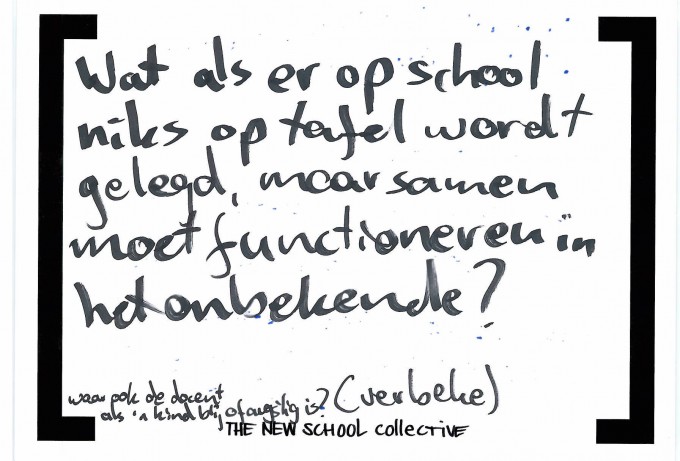 Wat als er op school
niks op tafel wordt
gelegd, maar samen
moet functioneren in
het onbekende?
waar ook de docent
als 'n kind blij of angstig is? (verbeke)
THE NEW SCHOOL COLLECTIVE